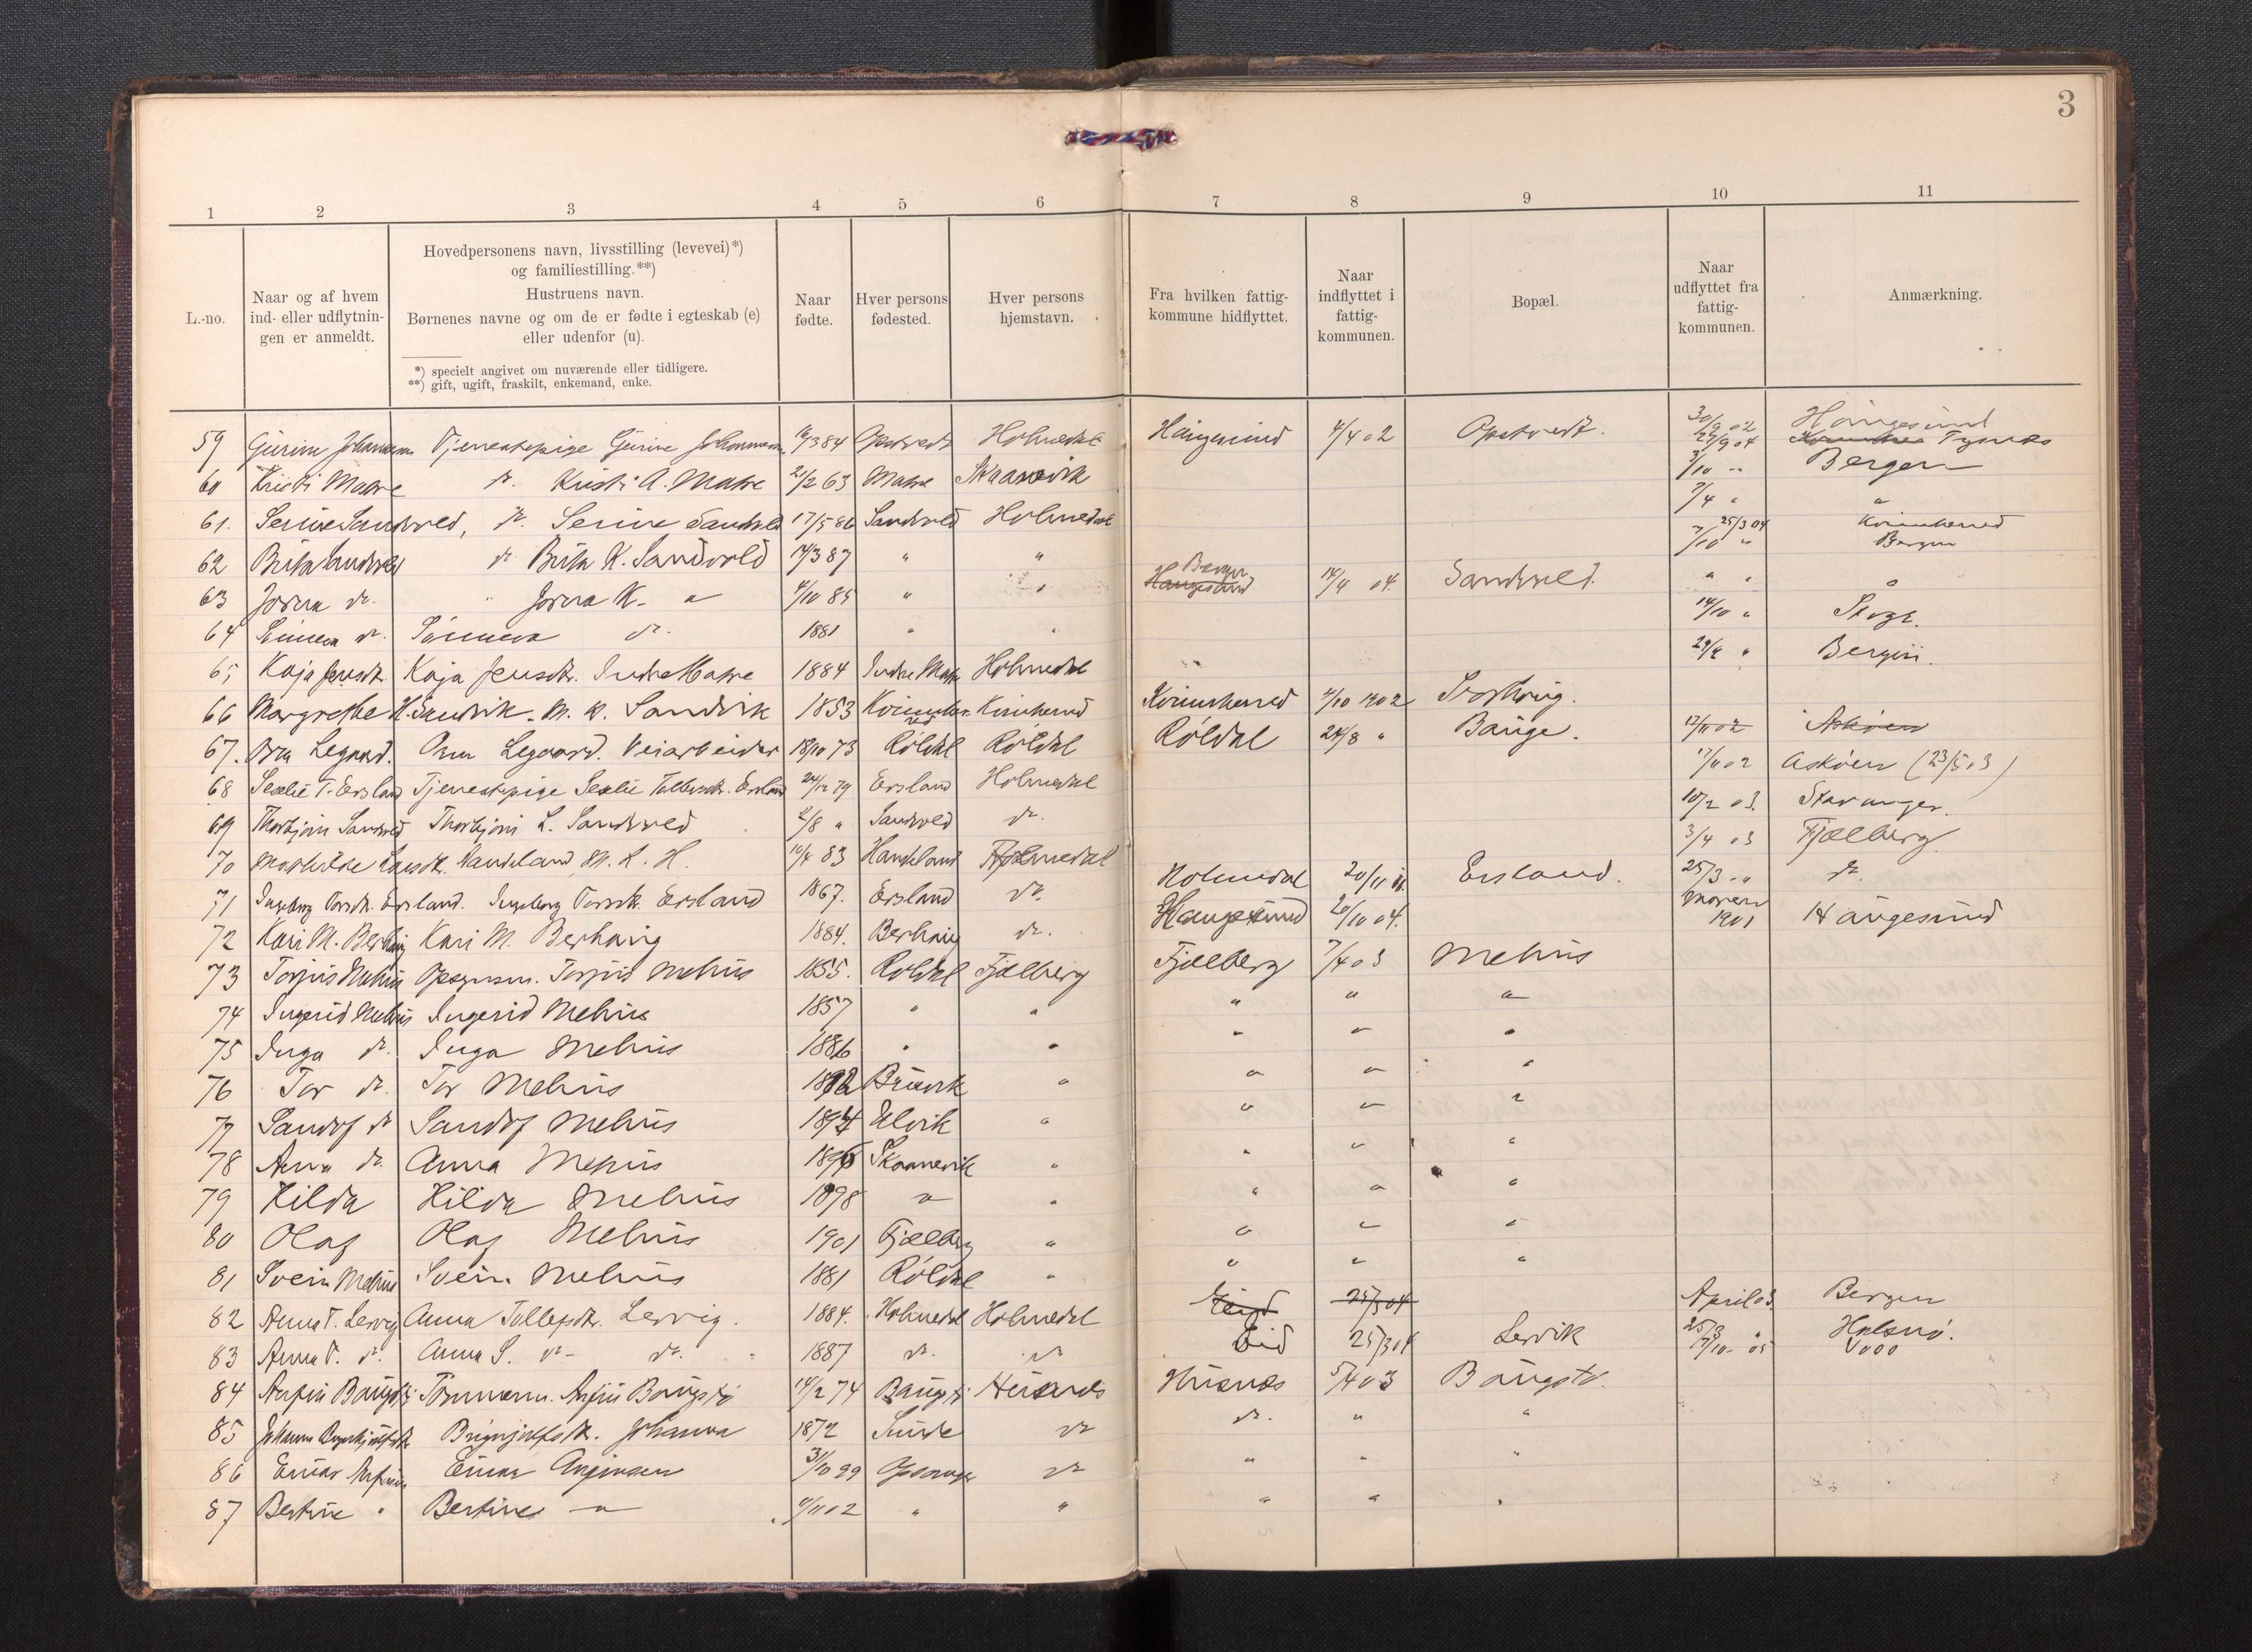 3
1 2 3 4 5 6 7 8 9 10 11
L.-no.
Naar og af hvem
ind- eller udflytnin-
gen er anmeldt.
Hovedpersonens navn, livsstilling (levevei)*)
og familiestilling.**)
Hustruens navn.
Børnenes navne og om de er fødte i egteskab (e)
eller udenfor (u).
*) specielt angivet om nuværende eller tidligere.
**) gift, ugift, fraskilt, enkemand, enke.
Naar
fødte.
Hver persons
fødested.
Hver persons
hjemstavn.
Fra hvilken fattig-
kommune hidflyttet.
Naar
indflyttet i
fattig-
kommunen.
Bopæl.
Naar
udflyttet fra
fattig-
kommunen.
Anmærkning.
30/9 02 Haugesund
59 Gurine Johannesen Tjenestepige Gurine Johannesen 16/3 84 Opstvedt Holmedal Haugesund 4/4 02 Opstvedt. 27/9 04 Tysnæs
60 Kristi Matre dr. Kristi A. Matre 21/2 63 Matre Skaanevik 3/10 " Bergen
61. Serine Sandvold, dr. Serine Sandvold 17/5 86 Sandvold Holmedal 7/4 " "
25/3 04 Kvinnherred
62 Brita Sandvold dr Brita K. Sandvold 14/3 87 " " 7/10 " Bergen
63 Jorna dr. " Jorna K. " 4/10 85 " " Bergen Haugesund 14/4 04. Sandvold. " " "
64 Sünneva dr. Sünneva dr. 1881 " " 14/10 " Stord.
65 Kaja Jensdtr. Kaja Jensdtr. Indre Matre 1884 Indre Matre Holmedal 29/4 " Bergen.
66 Margrethe H. Sandvik. M. H. Sandvik 1853 Kvinnherred Kvinherred Kvinnherred 4/10 1902
67. Legaard. Legaard. Veiarbeider 18/10 73 Röldal Röldal Röldal 24/8 " Bauge. 17/11 02 Asköen
68 T. Ersland Tjenestepige Ersland 24/12 79 Ersland Holmedal 17/11 02 Asköen (23/5 03)
69 Thorbjörn Sandvold Thorbjörn L. Sandvold 2/8 " Sandvold dr. 10/2 03. Stavanger.
70 Mathilde Larsdtr. Handeland M. L. H. 10/4 83 Handeland Holmedal 3/4 03 Fjælberg
71 Ingeborg Torsdtr. Ersland. Ingeborg Torsdtr. Ersland 1867. Ersland dr. Holmedal 20/11 Ersland. 25/3 " dr.
72 Kari M. Berhaug Kari M. Berhaug 1884. Berhaug dr. Haugesund 20/10 04. 1901 Haugesund
73 Torjus Mehus Opsynsm. Torjus Mehus 1855. Röldal Fjælberg Fjælberg 7/4 03 Mehus
74 Ingerid Mehus Ingerid Mehus 1857 " " " " "
75 Inga dr. Inga Mehus 1886 " " " " "
76 Tor dr. Tor Mehus 1892 " " " "
77 Sandof dr Sandof Mehus 1894 Ulvik " " " "
78 Anna dr. Anna Mehus 1896 Skaanevik " " " "
79 Hilda Hilda Mehus 1898 " " " " "
80 Olaf Olaf Mehus 1901 Fjælberg " " " "
81 Svein Mehus Svein Mehus 1881 Röldal " " " "
82 Anna T. Lervig Anna Tollefsdtr. Lervig. 1884. Holmedal Holmedal 25/3 04 April 03 Bergen
83 Anna dr. Anna S. dr. 1887 dr. dr Eid 25/3 04 Lervik 25/3 " Halsnö.
7/10 05 Voss
84 Arnfin Baugstö Tömmerm. Arnfin Baugstö 14/2 74 Baugstö Husnæs Husnæs 5/4 03 Baugstö.
85 Johanna Brynjulfsdtr Brynjulfsdtr. Johanna 1872 Sunde dr dr. " "
86 Einar Arnfinsen Einar Arnfinsen 31/10 99 Opsanger dr " " "
87 Bertine " Bertine " 4/11 02 " " " " "